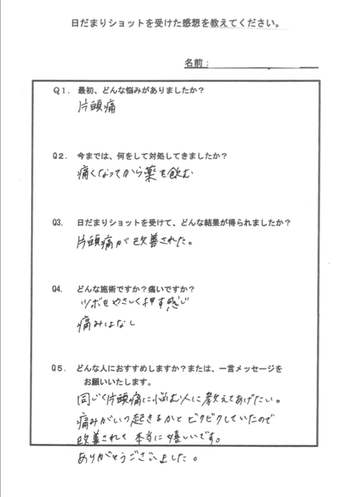 日だまりショットを受けた感想を教えてください。
名前:
Q1. 最初、どんな悩みがありましたか?
片頭痛
Q2. 今までは、何をして対処してきましたか?
痛くなってから薬を飲む
Q3. 日だまりショットを受けて、どんな結果が得られましたか?
片頭痛が改善された。
Q4. どんな施術ですか?痛いですか?
ツボをやさしく押す感じ
痛みはなし
Q5. どんな人におすすめしますか?または、一言メッセージを
お願いいたします。
同じく片頭痛に悩む人に教えてあげたい。
痛みがいつ起きるかとビクビクしていたので
改善されて本当に嬉しいです。
ありがとうございました。